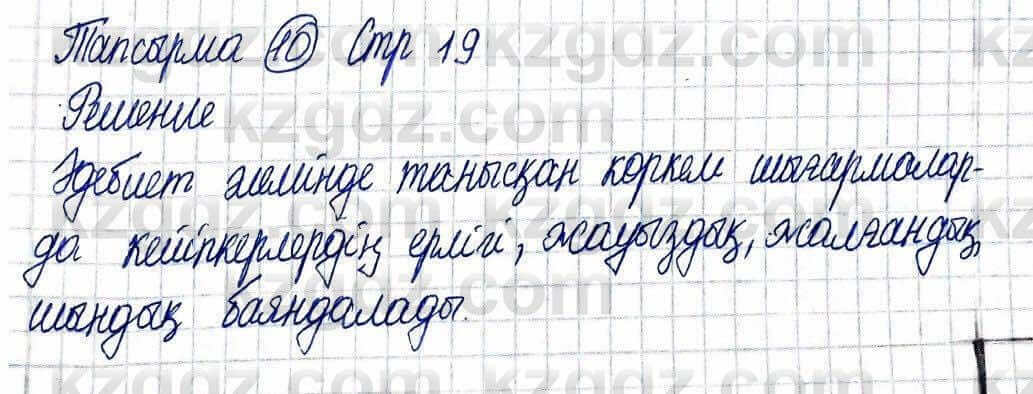 Тапсырма 10 Стр 19
Решение
Әдебиет әлемінде танысқан көркем шығармалар-
да кейіпкерлердің ерлігі, жауыздық, жалғандық,
шындық баяндалады.